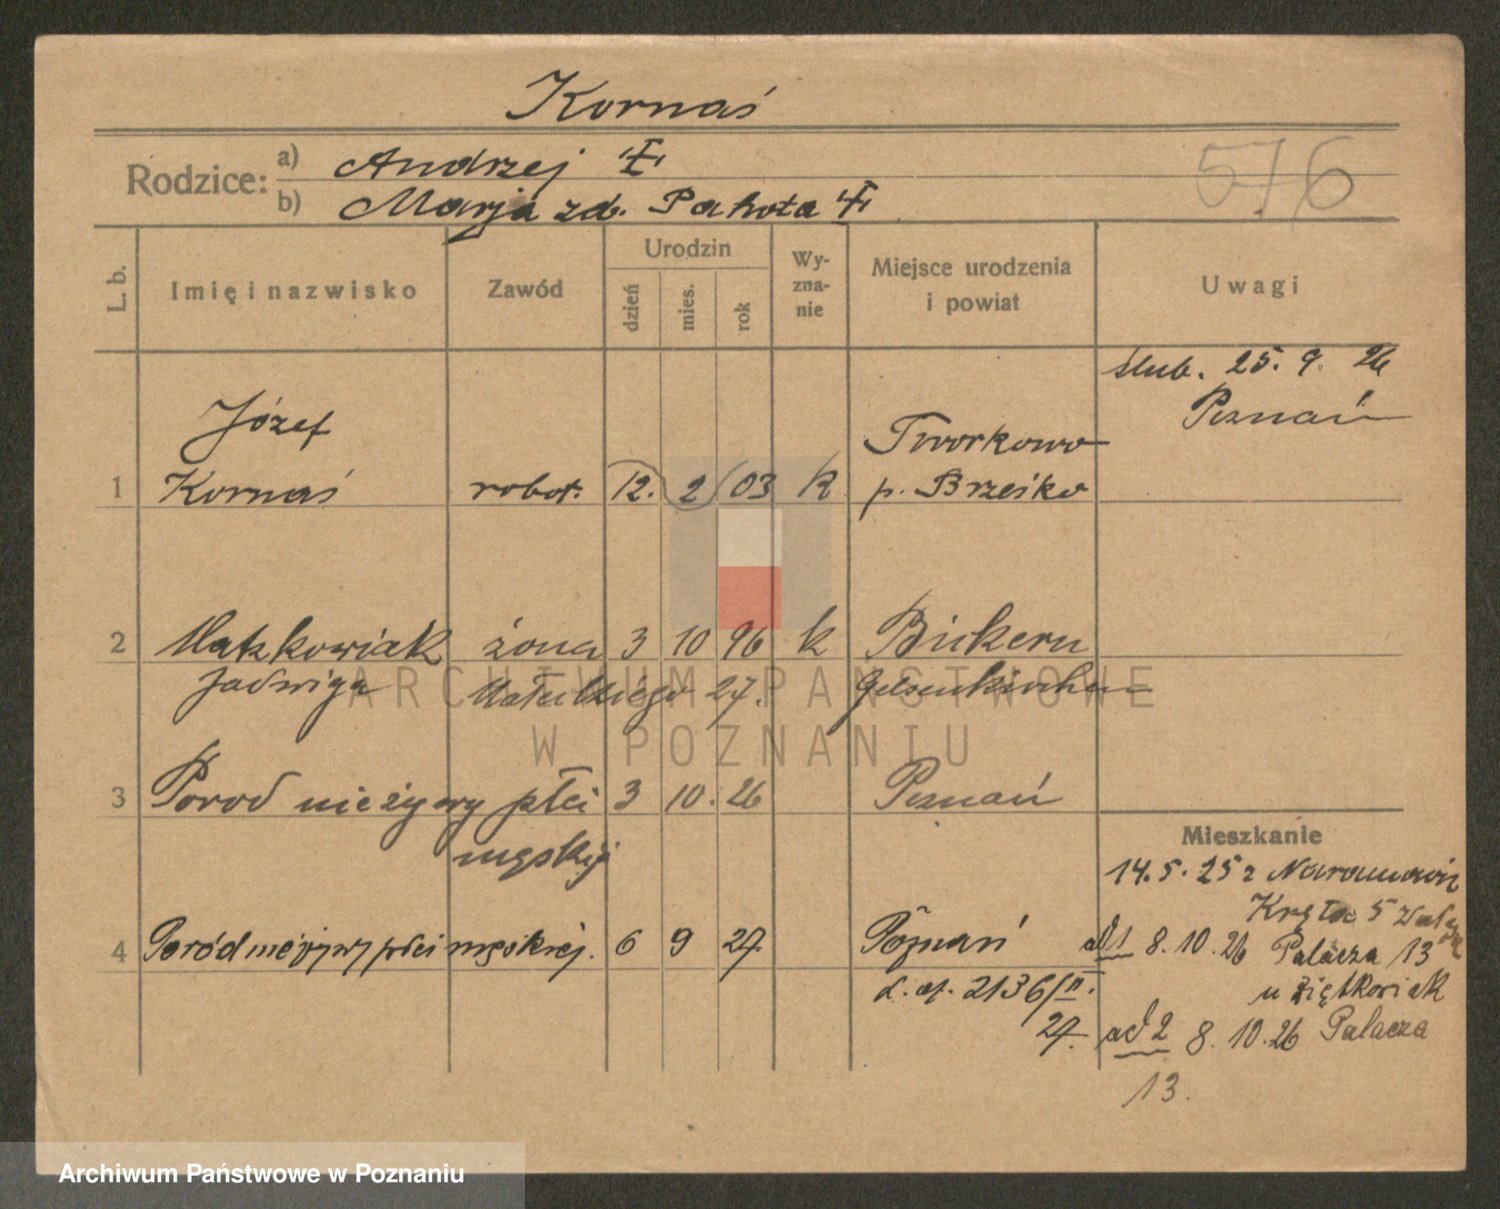 Kornaś
Rodzice: a) Andrzej
b) Marja zd. Pakota
576
L. b. Imię i nazwisko Zawód Urodzin dzień mies. rok Wy-zna-nie Miejsce urodzenia i powiat Uwagi
ślub. 25. 9. 26
Poznań
Józef Tworkowo
1 Kornaś robot. 12. 2 03 k p. Brześko
2 Matzkowiak żona 3 10 96 k Bickern
Jadwiga 27. Gelsenkirchen
3 Porod nieżywy płci 3 10. 26 Poznań
męskiej
Mieszkanie
14. 5. 25 z Naramowic
Kręta 5
4 Poród nieżywy płci męskiej. 6 9 27. Poznań
ad 1 8. 10. 26 Palacza 13
L. 2136/II. u Ziętkowiak
27. ad 2 8. 10. 26 Palacza
13.
ARCHIWUM PAŃSTWOWE
W POZNANIU
Archiwum Państwowe w Poznaniu